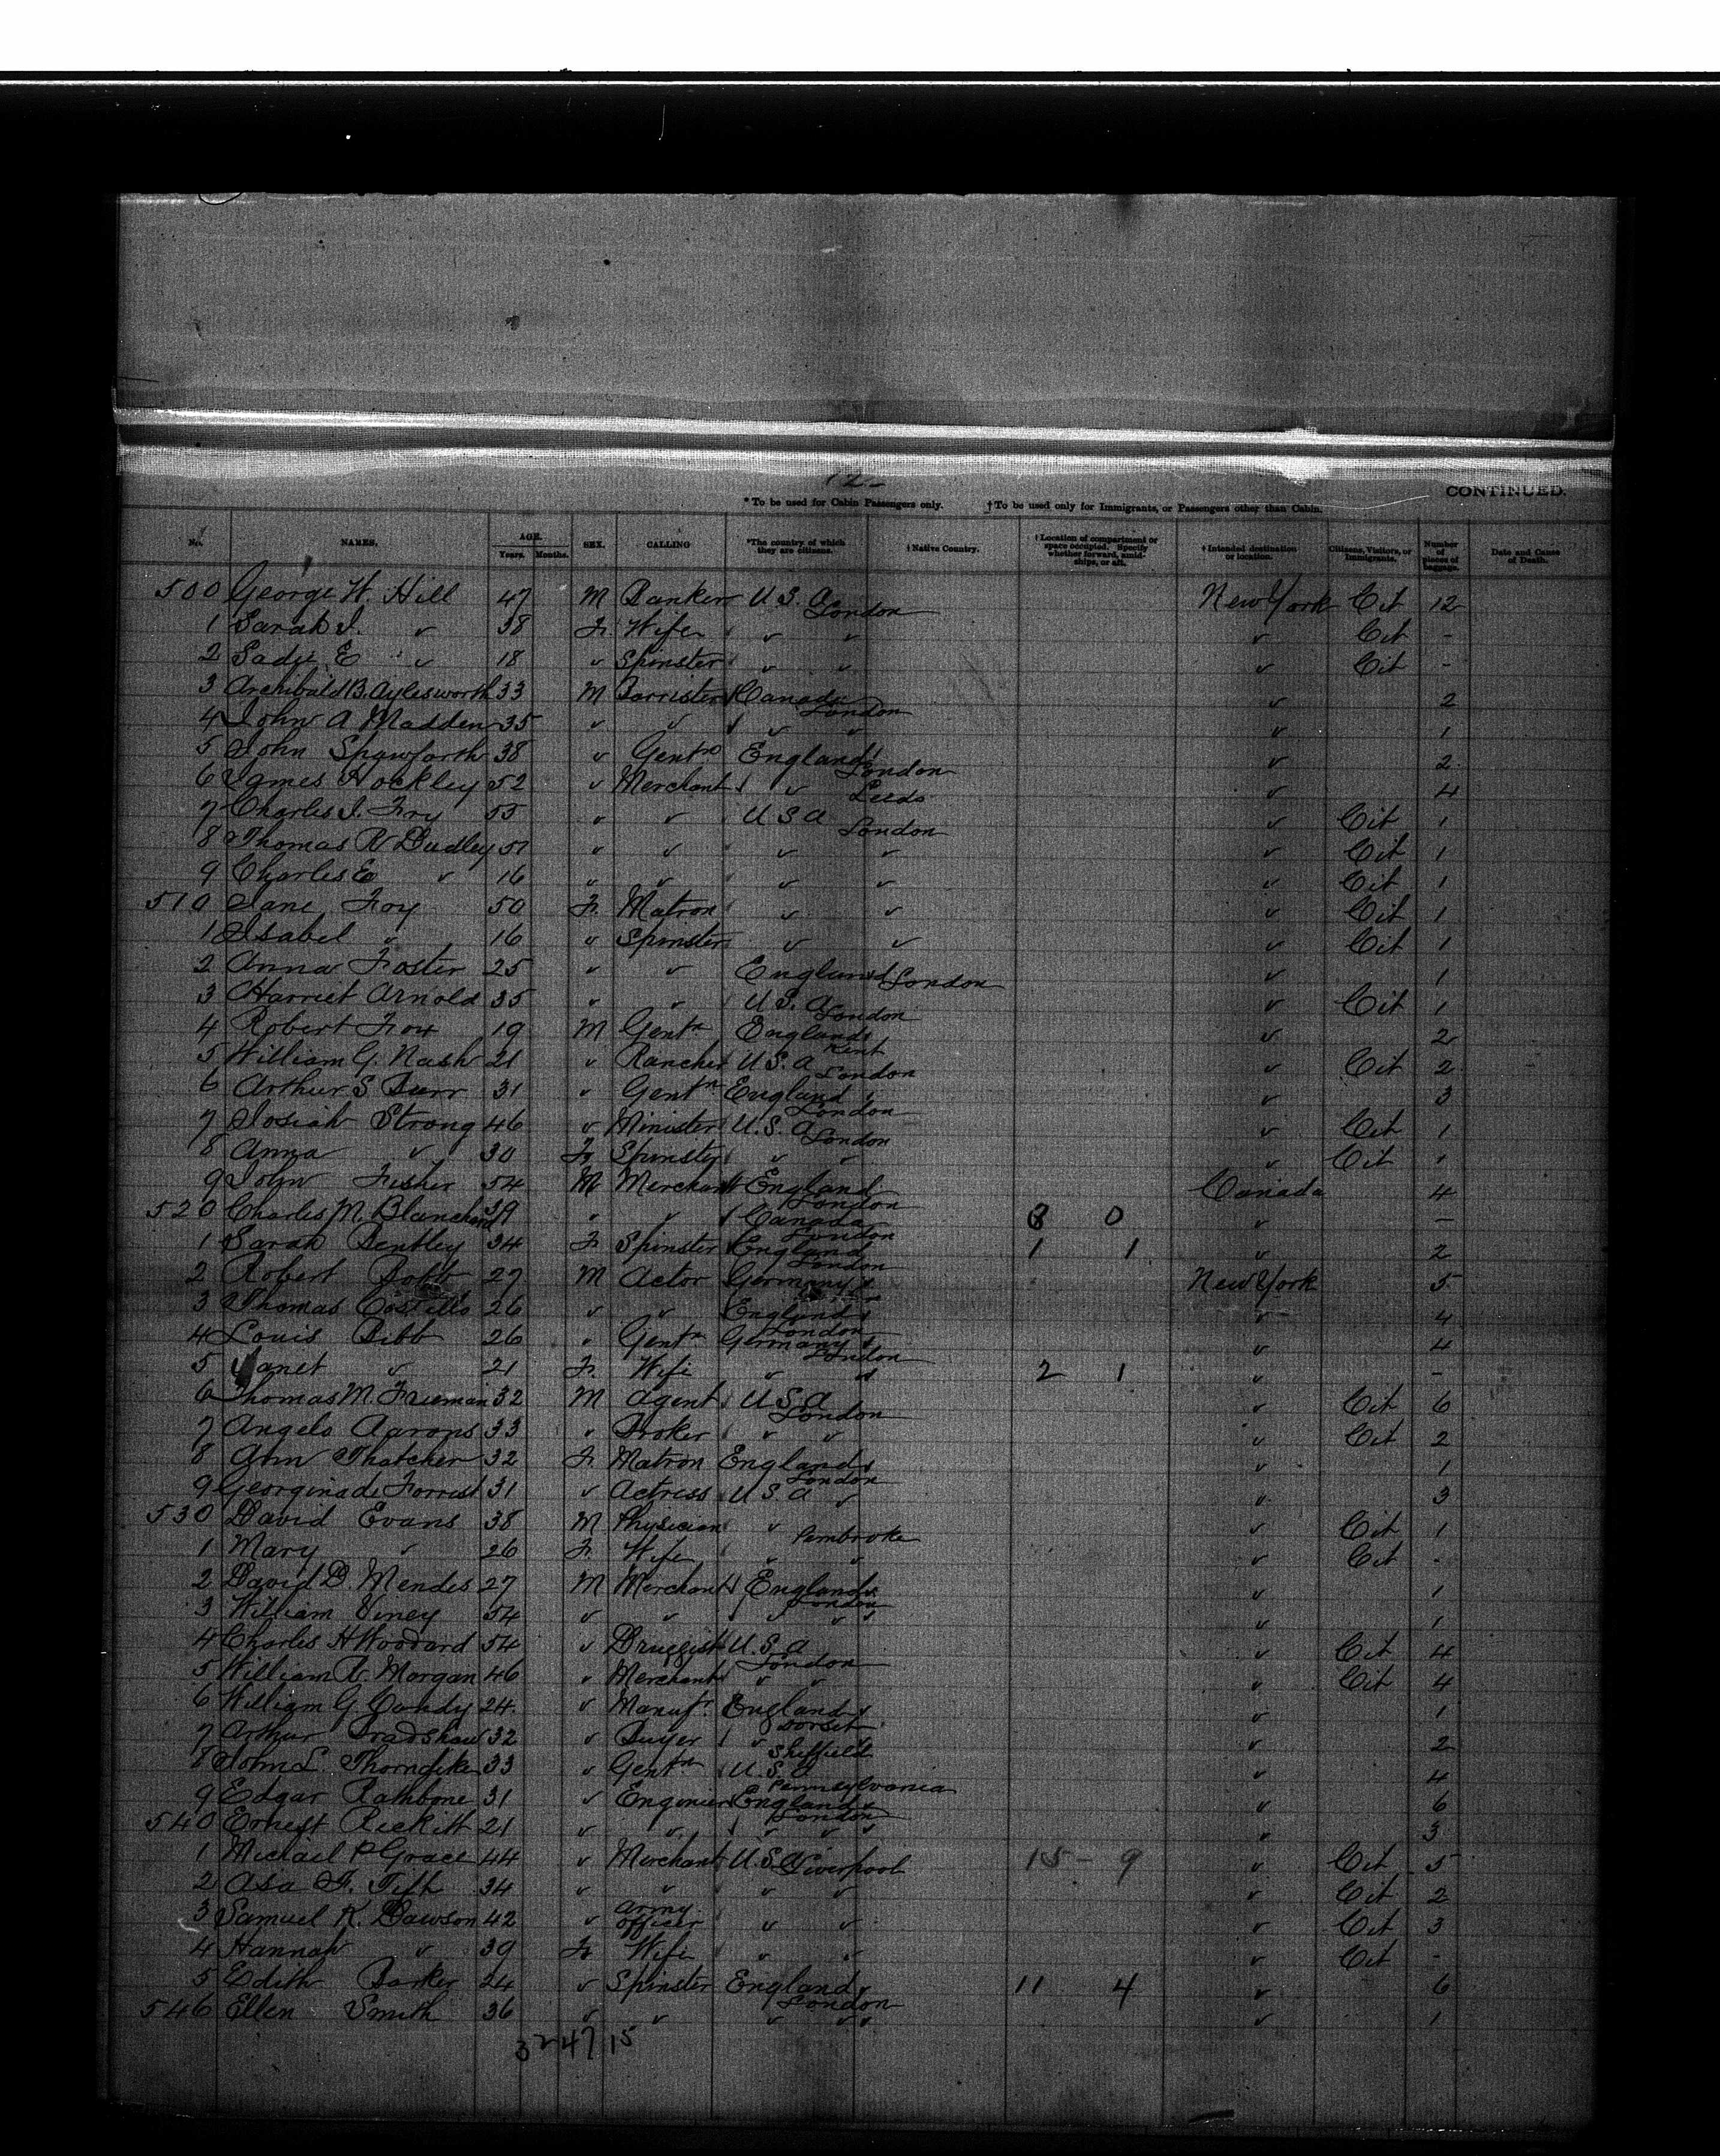 12-
CONTINUED.
*To be used for Cabin Passengers only. †To be used only for Immigrants, or Passengers other than Cabin.
No. NAMES. AGE. Years. Months. SEX. CALLING *The country of which they are citizens. †Native Country. †Location of compartment or space occupied. Specify whether forward, amidships, or aft. †Intended destination or location. Citizens, Visitors, or Immigrants. Number of pieces of baggage. Date and Cause of Death.
500 George W. Hill 47 M Banker U.S.A London New York Cit 12
1 Sarah J. " 38 F. Wife " " " Cit -
2 Sadye E " 18 " Spinster " " " Cit -
3 Archibald B. Aylesworth 33 M Barrister Canada London " 2
4 John A Madden 35 " " " " " 1
5 John Spawforth 38 " Gentn England London " 2
6 James Hockley 52 " Merchant " Leeds " 4
7 Charles J. Fry 55 " " U S A London " Cit 1
8 Thomas R Dudley 51 " " " " " Cit 1
9 Charles E " 16 " " " " " Cit 1
510 Jane Foy 50 F. Matron " " " Cit 1
1 Isabel " 16 " Spinster " " " Cit 1
2 Anna Foster 25 " " England London " 1
3 Harriet Arnold 35 " " U.S.A London " Cit 1
4 Robert Fox 19 M Gentn England Kent " 2
5 William G. Nash 21 " Rancher U.S.A London " Cit 2
6 Arthur S Burr 31 " Gentn England London " 3
7 Josiah Strong 46 " Minister U.S.A London " Cit 1
8 Anna " 30 F. Spinster " " " Cit 1
9 John Fisher 54 M Merchant England London Canada 4
520 Charles M. Blanchard 39 " " Canada London 8 0 " -
1 Sarah Bentley 34 F. Spinster England London 1 1 " 2
2 Robert 27 M Actor Germany New York 5
3 Thomas Costello 26 " " England London " 4
4 Louis Bibb 26 " Gentn Germany London " 4
5 Janet " 21 F. Wife " " 2 1 " -
6 Thomas M. Freeman 32 M Agent U.S.A London " Cit 6
7 Angelo Aarons 33 " Broker " " " Cit 2
8 Ann Thatcher 32 F. Matron England London " 1
9 Georgina de Forrest 31 " Actress U.S.A " " 3
530 David Evans 38 M Physician " Pembroke " Cit 1
1 Mary " 26 F. Wife " " " Cit -
2 David D. Mendes 27 M Merchant England London " 1
3 William Viney 54 " " " " " 1
4 Charles H Woodard 54 " Druggist U.S.A London " Cit 4
5 William R. Morgan 46 " Merchant " " " Cit 4
6 William G Candy 24 " Manufr England Dorset " 1
7 Arthur Bradshaw 32 " Buyer " Sheffield " 2
8 John L Thorndike 33 " Gentn U.S.A Pennsylvania " 4
9 Edgar Rathbone 31 " Engineer England London " 6
540 Ernest Reckitt 21 " " " " " 3
1 Michael P Grace 44 " Merchant U.S. Liverpool 15 - 9 " Cit 5
2 Asa F. Tift 34 " " " " " Cit 2
3 Samuel K. Dawson 42 " Army officer " " " Cit 3
4 Hannah " 39 F. Wife " " " Cit -
5 Edith Barker 24 " Spinster England London 11 4 " 6
546 Ellen Smith 36 " " " " " 1
32 47 15